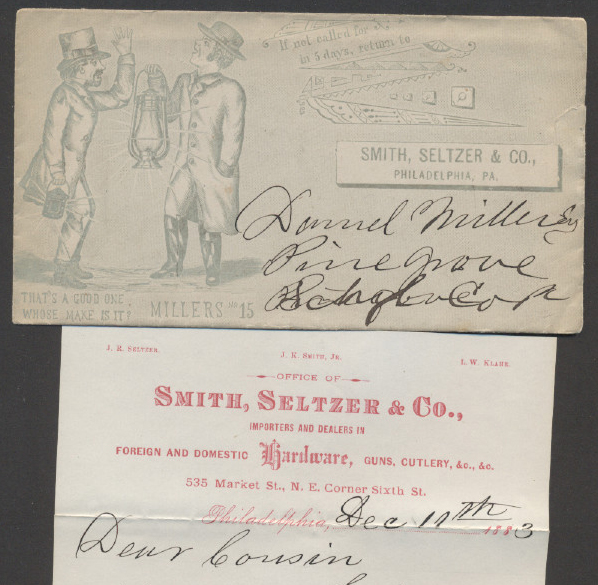 If not called for
in 5 days, return to
SMITH, SELTZER & CO.,
PHILADELPHIA, PA.
THAT'S A GOOD ONE.
WHOSE MAKE IS IT?
MILLERS No 15
Daniel Miller Esq
Pinegrove
Co Pa
J. R. SELTZER.
J. K. SMITH, JR.
L. W. KLAHR.
OFFICE OF
SMITH, SELTZER & CO.,
IMPORTERS AND DEALERS IN
FOREIGN AND DOMESTIC Hardware, GUNS, CUTLERY, &c., &c.
535 Market St., N. E. Corner Sixth St.
Philadelphia, Dec 17th 1883
Dear Cousin